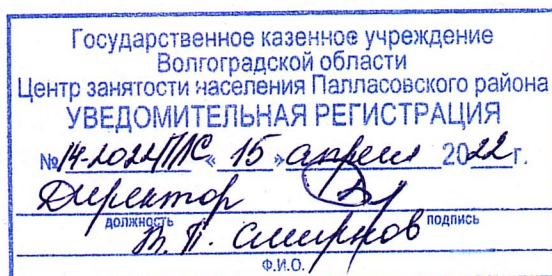 Государственное казенное учреждение
Волгоградской области
Центр занятости населения Палласовского района
УВЕДОМИТЕЛЬНАЯ РЕГИСТРАЦИЯ
№14-2022/ПЛС « 15 » апреля 2022 г.
Директор
должность подпись
В. П. Смирнов
Ф.И.О.